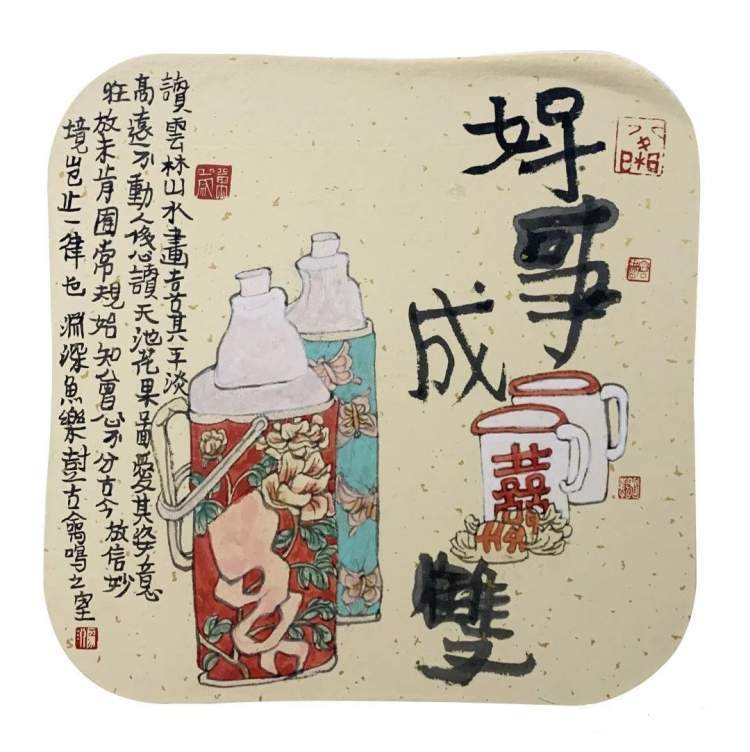 好事
成
雙
囍
讀雲林山水畫喜其平淡
高遠不動人心讀天池花果圖愛其姿意
狂放未肯囿常規始知會心不分古今放信妙
境豈止一律也 淵深魚樂樹古禽鳴之室